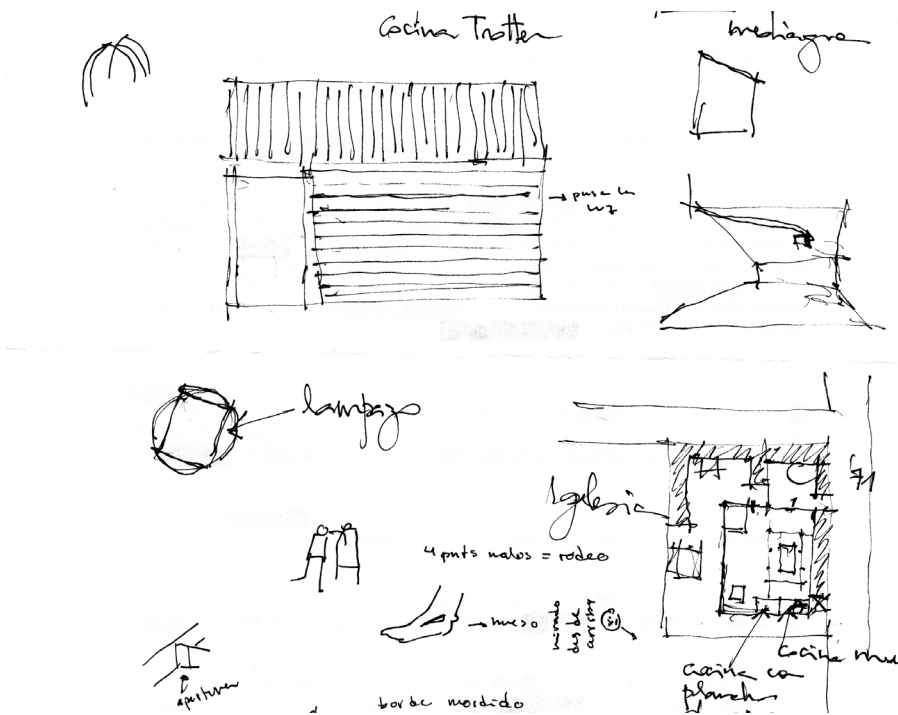 Cocina Trotter
mediagua
pasa la
luz
lampazo
Iglesia
4 punts malos = rodeo
→ hueso
mirado
des de
arriba
apertura
Cocina
cocina con
plancha
borde mordido